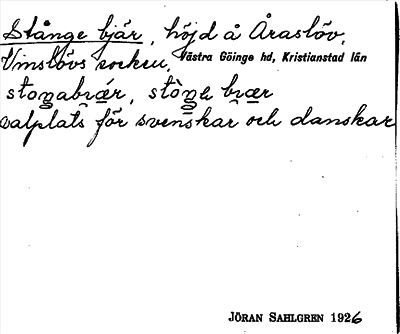 Stånge bjär, höjd å Araslöv,
Vinslövs socken, Västra Göinge hd, Kristianstad län
valplats för svenskar och danskar
JÖRAN SAHLGREN 1926